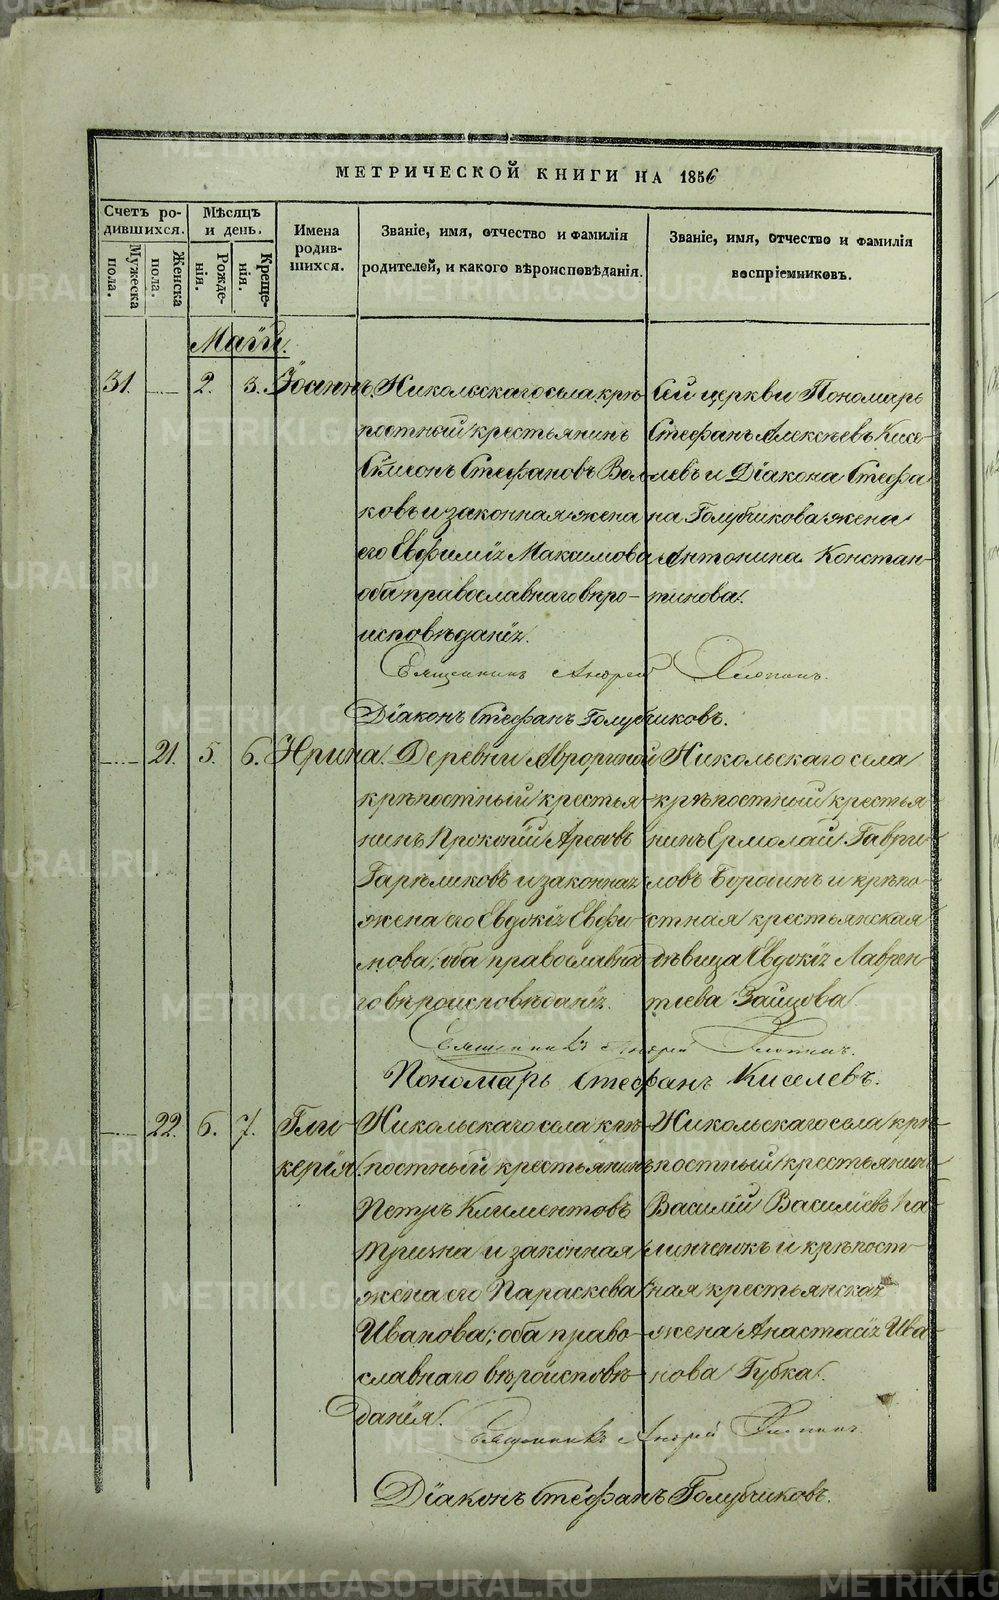 МЕТРИЧЕСКОЙ КНИГИ НА 1856
Счетъ ро-
дившихся.
Мѣсяцъ
и день.
Имена
родив-
шихся.
Званіе, имя, отчество и фамилія
родителей, и какого вѣроисповѣданія.
Званіе, имя, отчество и фамилія
воспріемниковъ.
Мужеска
пола.
Женска
пола.
Рожде-
нія.
Креще-
нія.
Маій.
31. 2. 3. Іоаннъ. Никольскаго села крѣ-
постный крестьянинъ
Сѷмеонъ Стефановъ Вол-
ковъ и законная жена
его Евфимія Максимова
оба православнаго вѣро-
исповѣданія.
Сей церкви Пономарь
Стефанъ Алексѣевъ Кисе-
левъ и Діакона Стефа
на Голубчикова жена
Антонина Констан-
тинова.
Священникъ Андрей
Діаконъ Стефанъ Голубчиковъ.
21. 5. 6. Ирина. Деревни
крѣпостный крестья-
нинъ Прокопій
и законная
жена его Евдокія Евфи-
мова; оба православна
го вѣроисповѣданія.
Никольскаго села
крѣпостный крестья-
нинъ Ермолай Гаври-
ловъ Бородинъ и крѣпо-
стная крестьянская
дѣвица Евдокія Лаврен-
тіева Зайцова.
Священникъ Андрей
Пономарь Стефанъ Киселевъ.
22. 6. 7. Гли-
керія.
Никольскаго села крѣ-
постный крестьянинъ
Петръ Климентовъ
и законная
жена его Параскева
Иванова; оба право-
славнаго вѣроисповѣ
данія.
Никольскаго села крѣ-
постный крестьянинъ
Василій Василіевъ
и крѣпост-
ная крестьянская
жена Анастасія Ива-
нова Губка.
Священникъ Андрей
Діаконъ Стефанъ Голубчиковъ.
METRIKI.GASO-URAL.RU